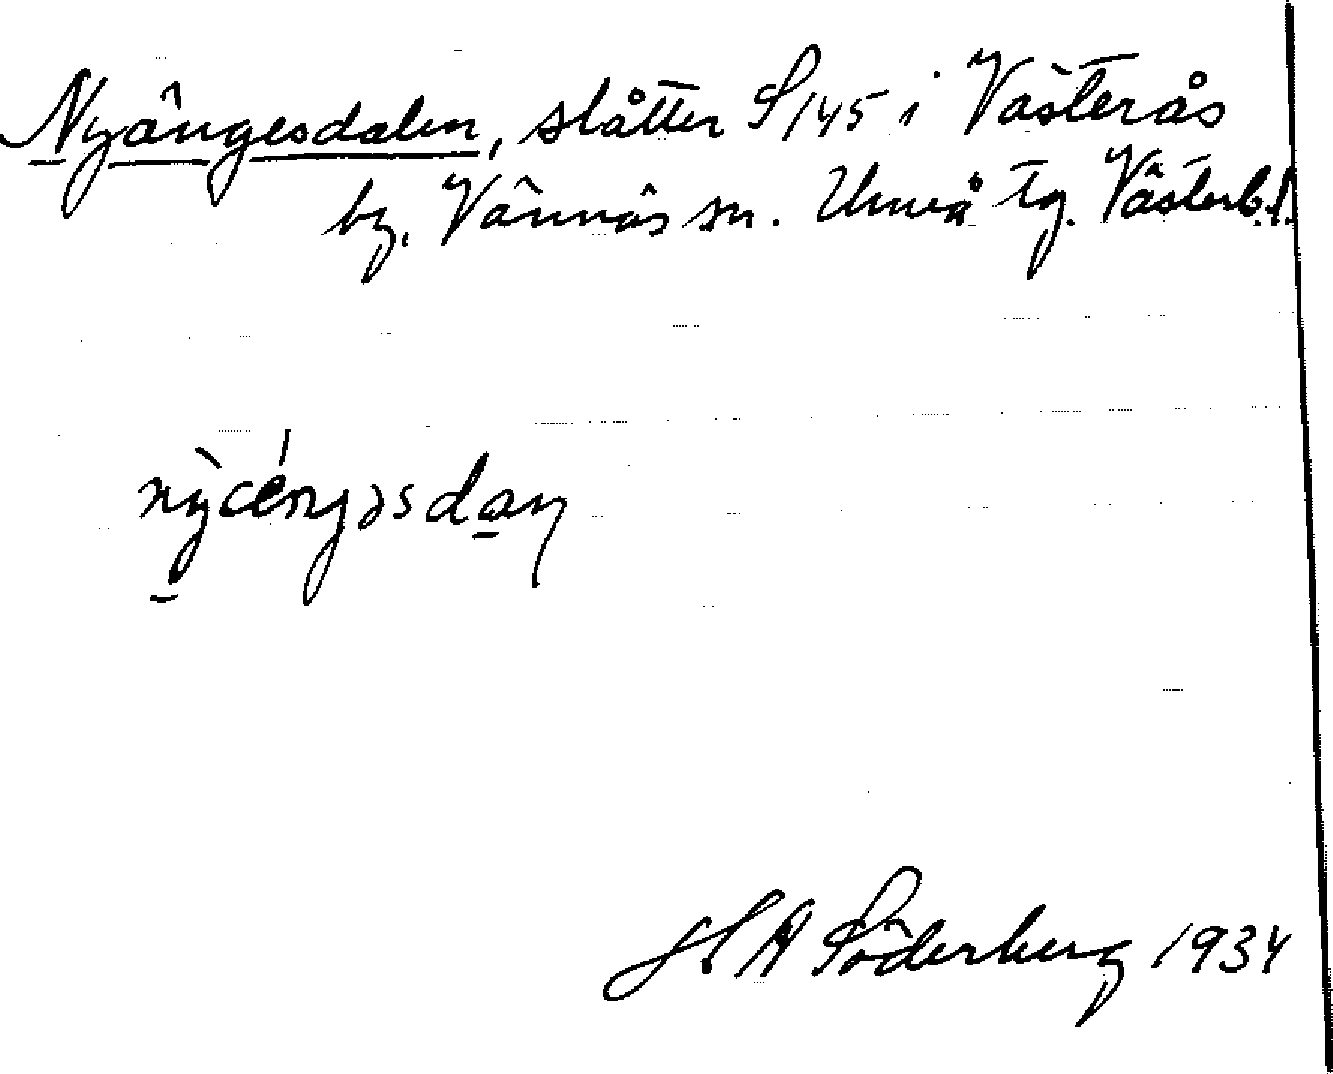 Nyängesdalen, slåtter S/145 i Västerås
by, Vännäs sn. Umeå tg. Västerb.l.
nỳæ̀ŋǝsdaɳ
H A Söderberg 1934